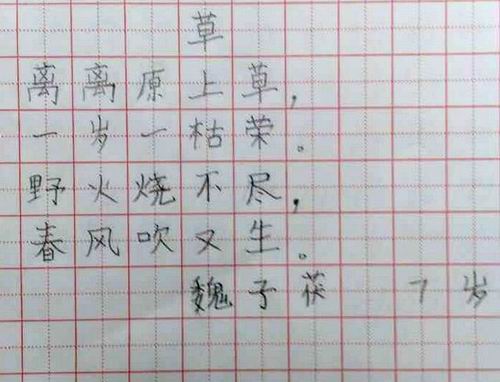 草
离离原上草，
一岁一枯荣。
野火烧不尽，
春风吹又生。
魏子茯 7岁